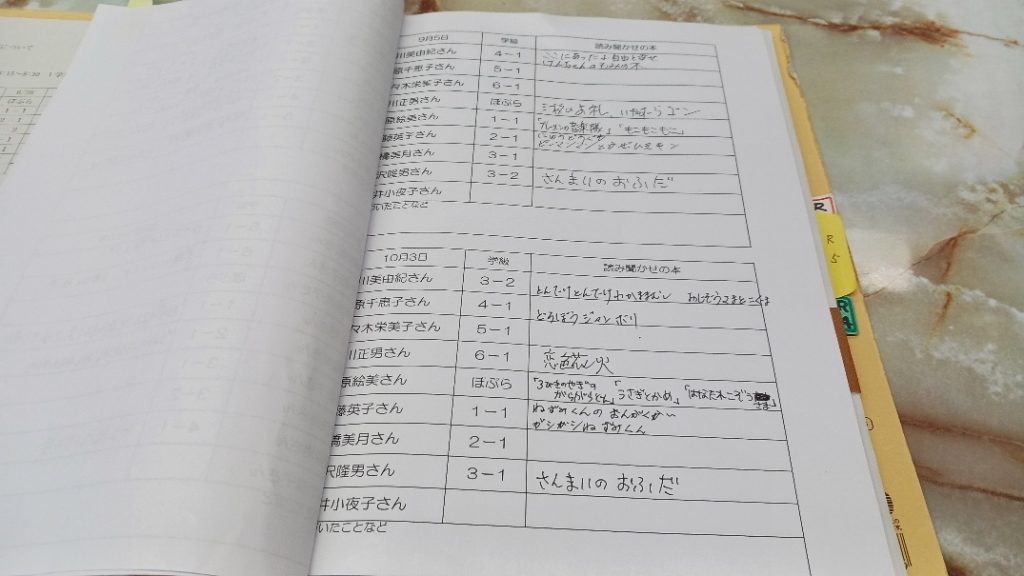 9月5日 学級 読み聞かせの本
川美由紀さん 4-1 ここにあったよ自由と幸せ
けんちゃんのもみの木
原千恵子さん 5-1
々木栄美子さん 6-1
川正男さん ほぷら 三枚のお札、
原絵美さん 1-1 「ブレーメンの音楽隊」「もこもこもこ」
藤英子さん 2-1
橋美月さん 3-1
沢隆男さん 3-2 さんまいのおふだ
井小夜子さん
いたことなど
10月3日 学級 読み聞かせの本
川美由紀さん 3-2 とんでりとんでりわかまもん おじぞうさまとこぐま
原千恵子さん 4-1 どろぼうジャンボリ
々木栄美子さん 5-1
川正男さん 6-1 火
原絵美さん ほぷら "3びきのやぎ"の がらがらどん」「うさぎとかめ」「はなたれこぞうさま」
藤英子さん 1-1 ねずみくんのおんがくかい
ガシガシねずみくん
橋美月さん 2-1
沢隆男さん 3-1 さんまいのおふだ
井小夜子さん
いたことなど
R
R
5
R
4